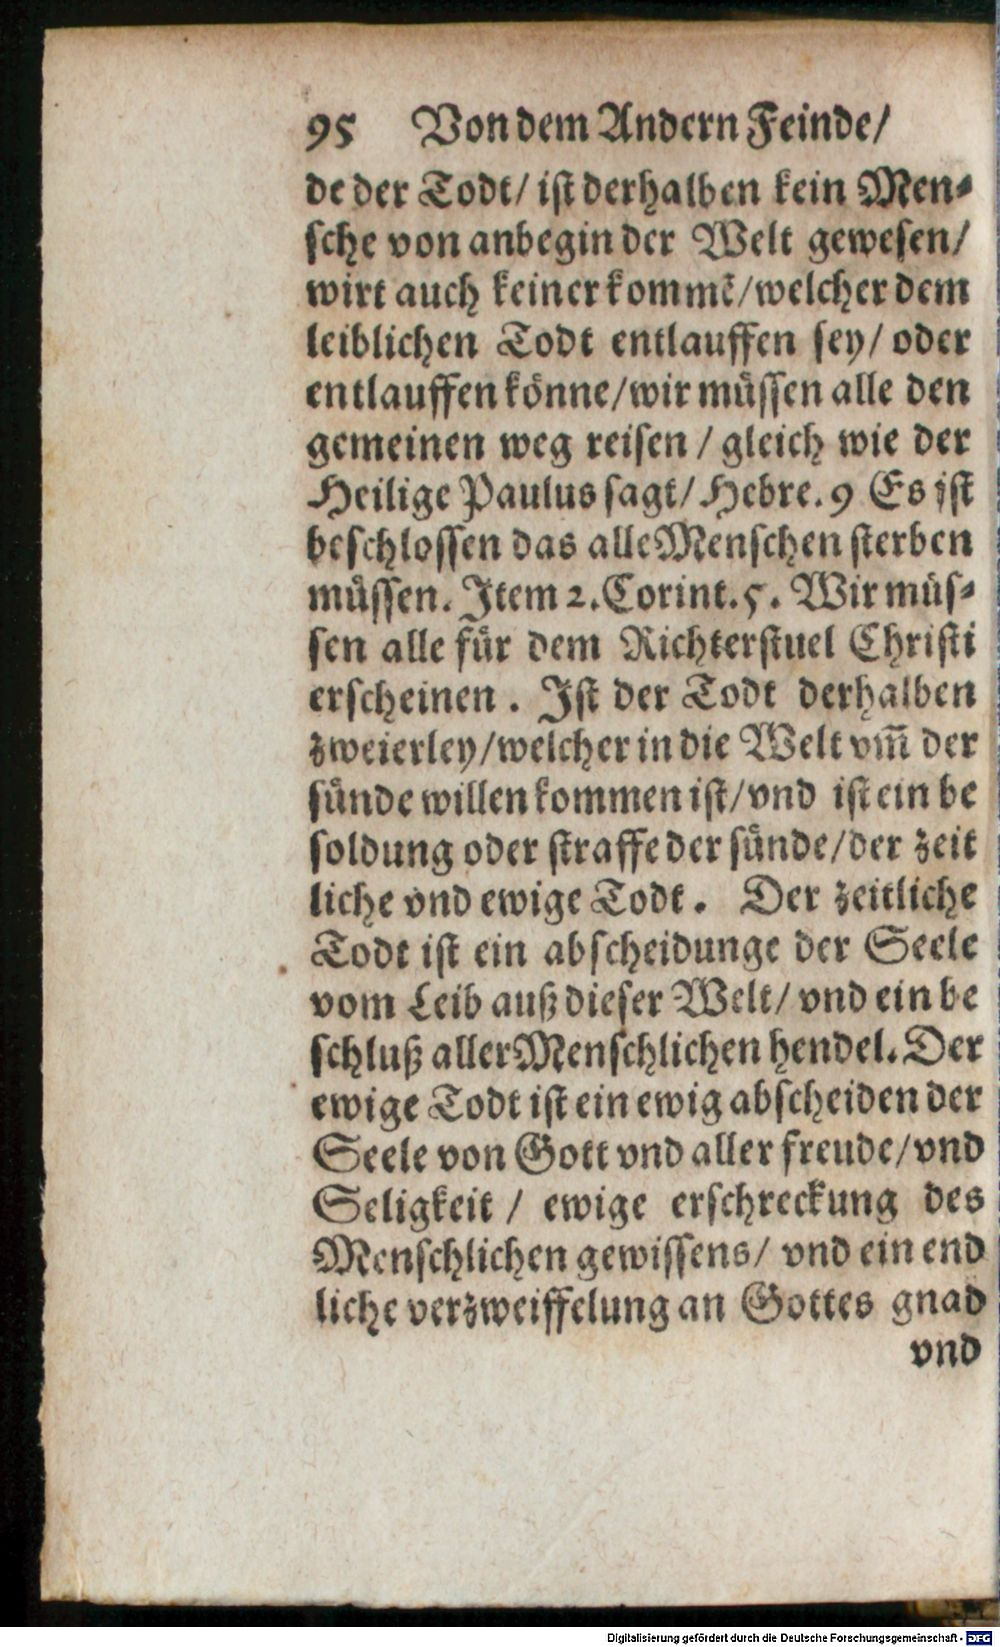 95 Von dem Andern Feinde/
de der Todt/ ist derhalben kein Men⸗
sche von anbegin der Welt gewesen/
wirt auch keiner kommē/welcher dem
leiblichen Todt entlauffen sey/ oder
entlauffen könne/wir müssen alle den
gemeinen weg reisen / gleich wie der
Heilige Paulus sagt/ Hebre. 9 Es ist
beschlossen das alle Menschen sterben
müssen. Item 2. Corint. 5. Wir müs⸗
sen alle für dem Richterstuel Christi
erscheinen . Ist der Todt derhalben
zweierley/welcher in die Welt vm̄ der
sünde willen kommen ist/vnd ist ein be
soldung oder straffe der sünde/der zeit
liche vnd ewige Todt. Der zeitliche
Todt ist ein abscheidunge der Seele
vom Leib auß dieser Welt/ vnd ein be
schluß aller Menschlichen hendel. Der
ewige Todt ist ein ewig abscheiden der
Seele von Gott vnd aller freude/vnd
Seligkeit / ewige erschreckung des
Menschlichen gewissens/ vnd ein end
liche verzweiffelung an Gottes gnad
vnd
Digitalisierung gefördert durch die Deutsche Forschungsgemeinschaft - DFG